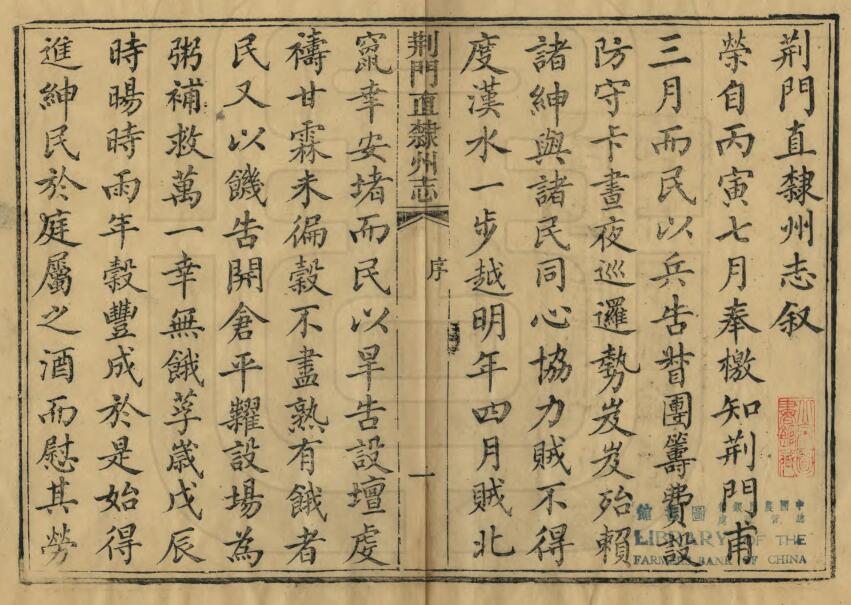 荆門直隸州志叙
榮自丙寅七月奉檄知荆門甫
三月而民以兵告督團籌費設
防守卡晝夜巡邏勢岌岌殆賴
諸紳與諸民同心協力賊不得
度漢水一步越明年四月賊北
荆門直隸州志
序
一
竄幸安堵而民以旱告設壇虔
禱甘霖未徧穀不盡熟有餓者
民又以饑告開倉平糶設場為
粥補救萬一幸無餓莩歲戊辰
時暘時雨年穀豐成於是始得
進紳民於庭屬之酒而慰其勞
LIBRARY OF THE
FARMERS BANK OF CHINA